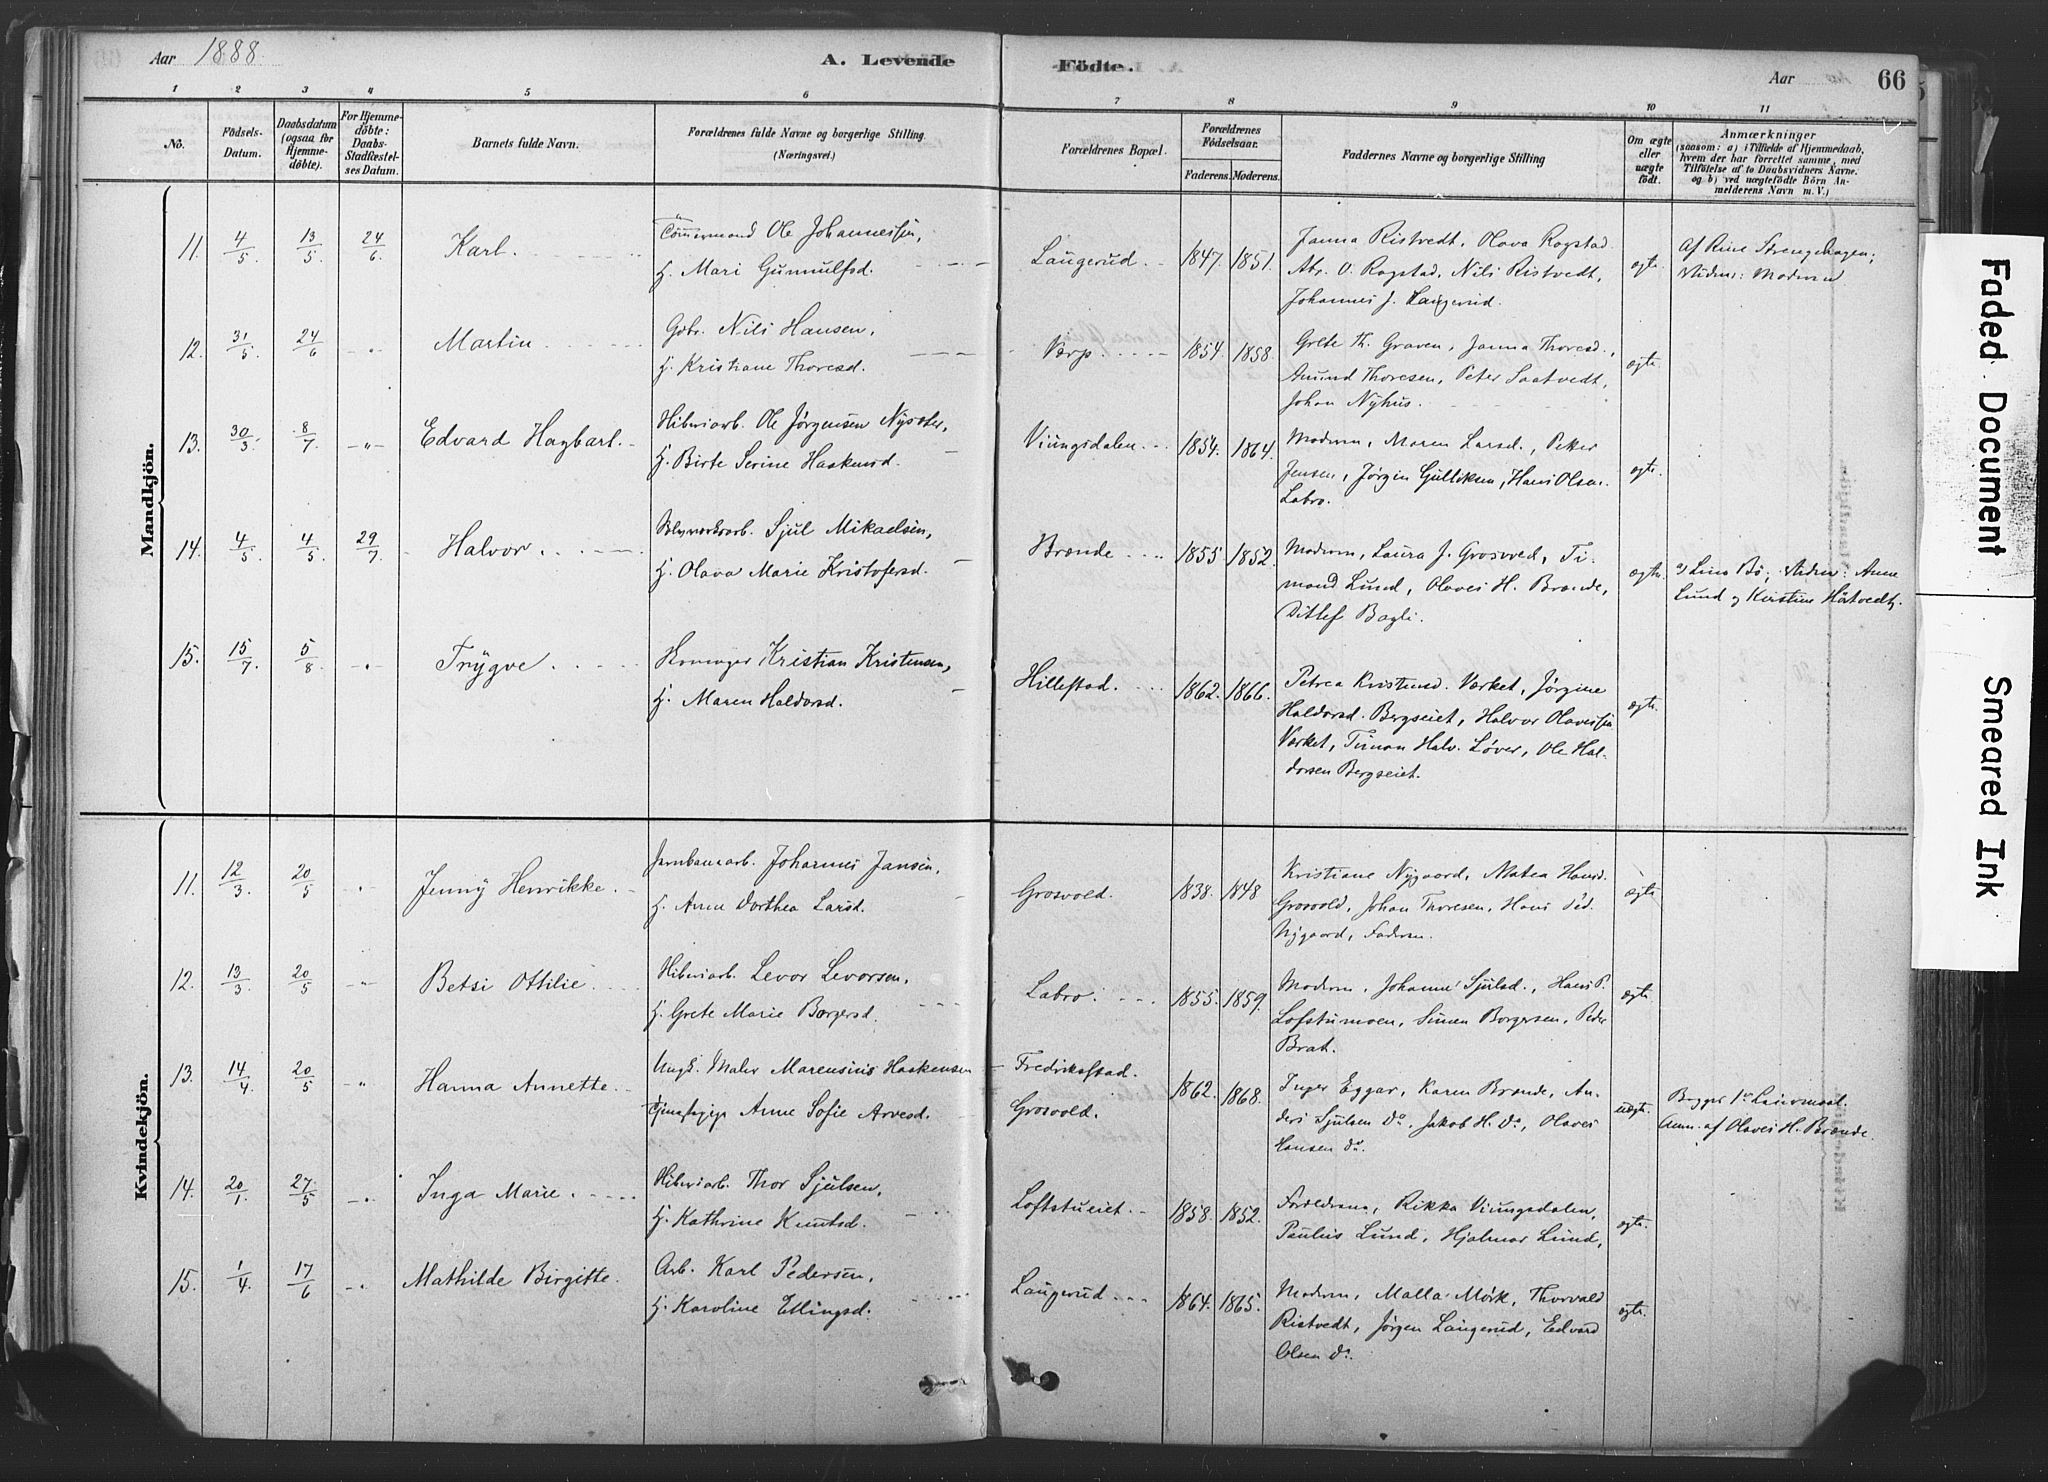 Aar 1888.
A. Levende
Födte.
Aar
66
1 2 3 4 5 6 7 8 9 10 11
No.
Födsels-Datum.
Daabsdatum (ogsaa for Hjemme-döbte).
For Hjemme-döbte: Daabs-Stadfæstel-ses Datum.
Barnets fulde Navn.
Forældrenes fulde Navne og borgerlige Stilling. (Næringsvei.)
Forældrenes Bopæl.
Forældrenes Födselsaar.
Faderens. Moderens.
Faddernes Navne og borgerlige Stilling
Om ægte eller uægte födt.
Anmærkninger
(saasom: a) i Tilfælde af Hjemmedaab, hvem der har forrettet samme, med Tilföielse af to Daabsvidners Navne. og b) ved uægtefödte Börn An-melderens Navn m. V.)
Mandkjön.
11. 4/5 13/5 24/6 Karl.
Tömmermand Ole Johannessen,
h. Mari Gunnulfsd.
Laugerud 1847. 1851.
Janna Ristvedt, Olava Rogstad
Abr. O. Rogstad, Nils Ristvedt,
Johannes J. Laugerud.
ægte.
Af Rine Strengehagen;
Vidne: Moderen
12. 31/5 24/6 Martin
Gbr. Nils Hansen,
h. Kristiane Thoresd.
Værp. 1854. 1858.
Grete Th. Graven, Janna Thoresd.,
Amund Thoresen, Peter Saatvedt,
Johan Nyhus.
ægte.
13. 30/3 8/7 Edvard Hagbart.
Hiberiarb. Ole Jørgensen Nysæter,
h. Birte Serine Haakensd.
Viungsdalen 1854. 1864.
Moderen, Maren Larsd., Peter
Jensen, Jørgen Gulliksen, Hans Olsen
Labro.
ægte.
14. 4/5 4/5 29/7 Halvor.
Sjul Mikaelsen,
h. Olava Marie Kristofersd.
Brænde 1855 1852.
Moderen, Laura J. Grosvold, Ti-
mand Lund, Olaves H. Brænde,
Ditlef Bagli.
ægte.
a) Lina Bö; Vidner: Anne
Lund og Kirstine Hostvedt.
15. 15/7 5/8 Trygve.
Kristian Kristensen,
h. Maren Haldorsd.
Hillestad. 1862. 1866.
Petrea Kristensd. Værket, Jørgine
Haldorsd. Bergseiet, Halvor Olavessen
Værket, Timan Halv. Løver, Ole Hal-
dorsen Bergseiet.
ægte.
Kvindekjön.
11. 12/3 20/5 Jenny Henrikke.
Jernbanearb. Johannes Jansen,
h. Anne Dorthea Larsd.
Grosvold. 1838. 1848
Kristiane Nygaard, Matea Hansd.
Grosvold, Johan Thoresen, Hans Ped.
Nygaard, Faderen.
ægte
12. 13/3 20/5 Betsi Ottilie
Hiberiarb. Levor Levorsen,
h. Grete Marie Borgersd.
Labro. 1855. 1859.
Moderen, Johanne Sjulsd., Hans P.
Loftstumoen, Simen Borgersen, Peder
Brat.
ægte
13. 14/4 20/5 Hanna Annette.
Ungk. Maler Marensius Haakensen
Tjenestepige Anne Sofie Arvesd.
Fredrikstad.
Grosvold.
1862. 1868.
Inger Eggar, Karen Brænde, An-
ders Sjulsen Do, Jakob H. Do, Olaves
Hansen Do.
uægte.
Begges 1ste Leiermaal.
Anm. af Olaves H. Brænde.
14. 20/1 27/5 Inga Marie.
Hiberiarb. Thor Sjulsen,
h. Kathrine Knutsd.
Loftstueiet. 1858. 1852.
Forældrene, Rikka Viungsdalen,
Paulus Lund, Hjalmar Lund,
ægte.
15. 1/4 17/6 Mathilde Birgitte.
Arb. Karl Pedersen,
h. Karoline Ellingsd.
Laugerud 1864. 1865.
Moderen, Malla Mörk, Thorvald
Ristvedt, Jørgen Laugerud, Edvard
Olsen Do.
ægte.
Faded Document
Smeared Ink